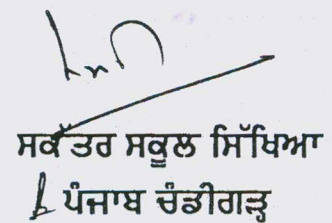 ਸਕੱਤਰ ਸਕੂਲ ਸਿੱਖਿਆ
ਪੰਜਾਬ ਚੰਡੀਗੜ੍ਹ